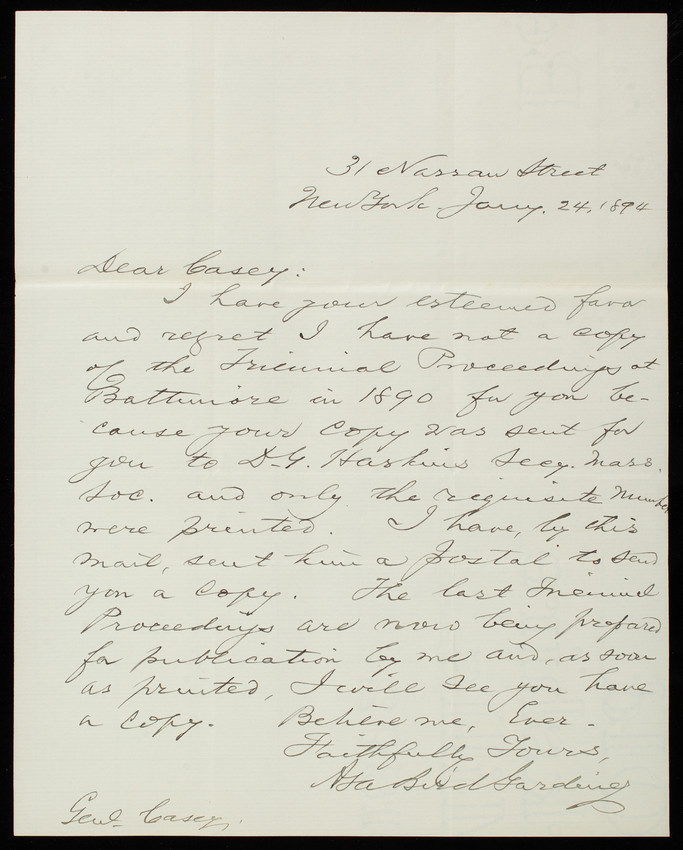 31 Nassau Street
New York. Jany. 24, 1894
Dear Casey:
I have your esteemed favor
and regret I have not a copy
of the Triennial Proceedings at
Baltimore in 1890 for you be-
cause your copy was sent for
you to D. G. Haskins Secy. Mass.
Soc. and only the requisite number
were printed. I have, by this
mail, sent him a postal to send
you a copy. The last Triennial
Proceedings are now being prepared
for publication by me and, as soon
as printed, I will see you have
a copy. Believe me, Ever-
Faithfully Yours,
Asa Bird Gardiner
Genl. Casey.